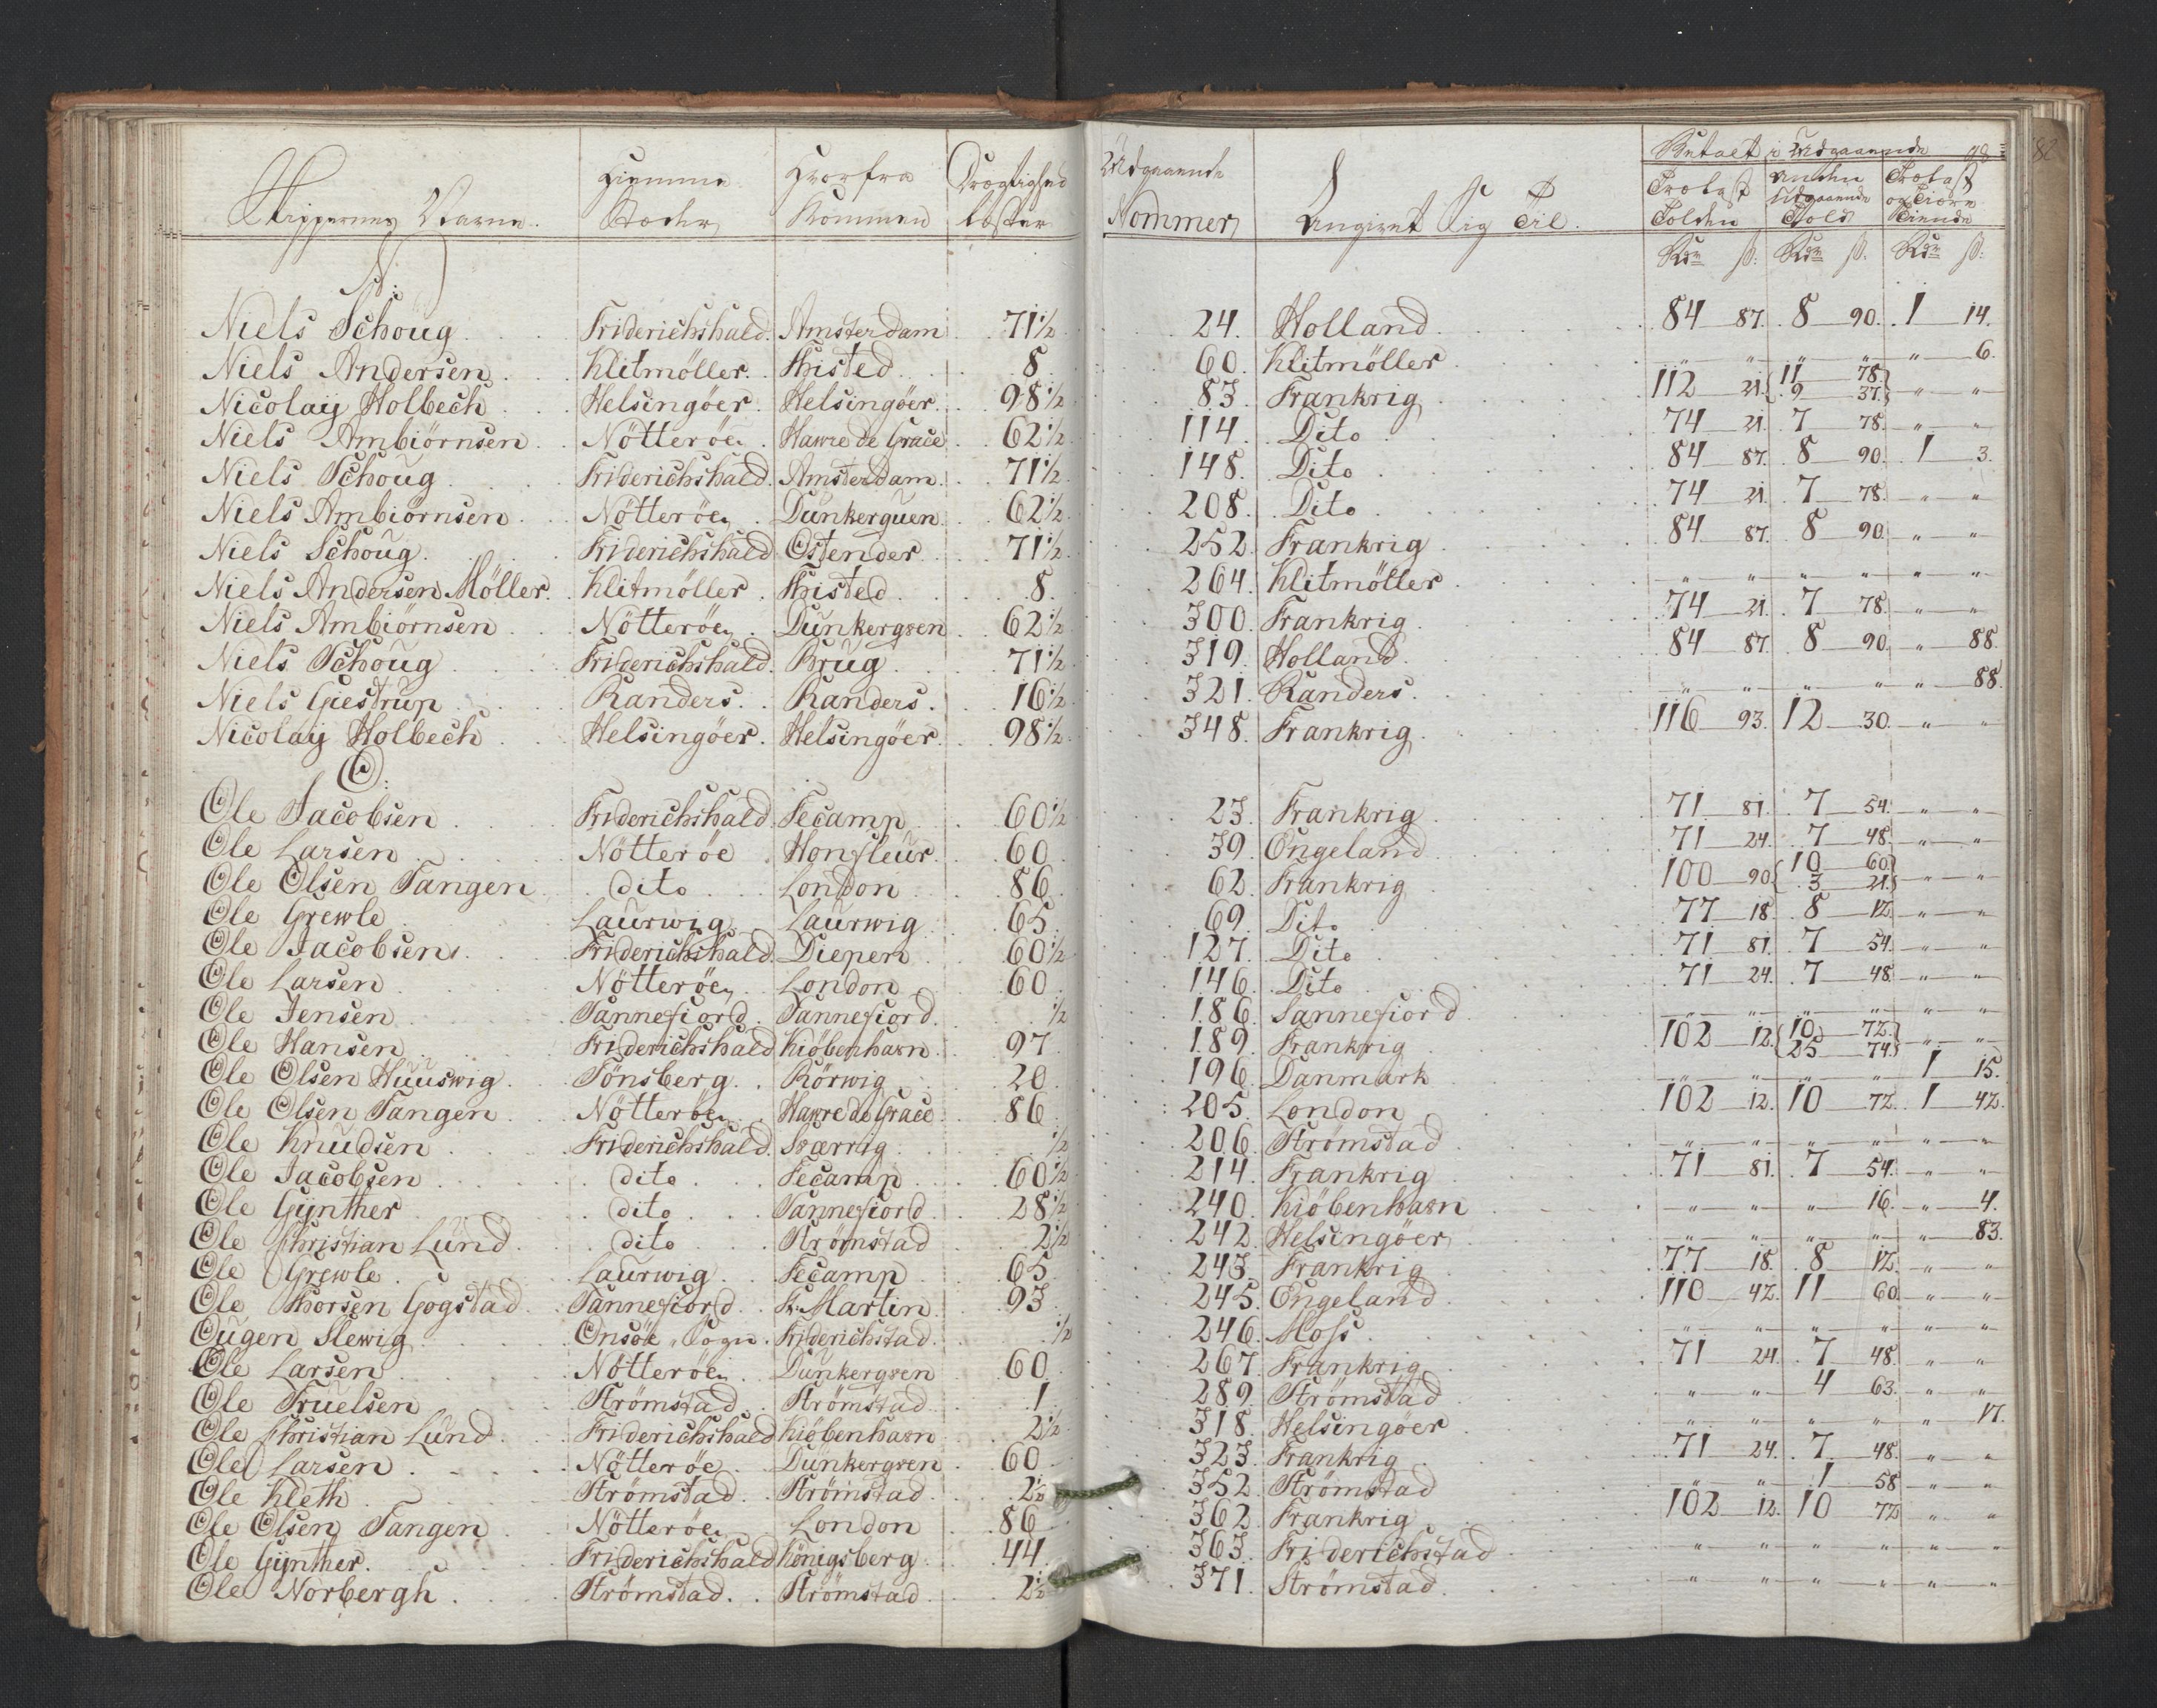 Skippernes Navne. | Hiemme Stæder | Hvorfra Kommen | Drægtighed Læster | Udgaaende Nommer | Angivet Sig Til. | Betalt i Udgaaende
Trælast Tolden | Anden Udgaaende Told | Trælast og Tiære Tiende
Rdr ß: | Rdr ß. | Rdr ß:
N:
Niels Schoug | Friderichshald. | Amsterdam | 71 1/2 | 24. | Holland | 84 87. | 8 90. | 1 14.
Niels Andersen | Klitmöller. | Thisted | 8 | 60. | Klitmöller | " " | " " | " 6.
Nicolaij Holbech | Helsingöer. | Helsingöer. | 98 1/2 | 83. | Frankrig | 112 21. | 11 78. 9 37. | " "
Niels Ambiörnsen | Nötteröe | Hawre de Grace | 62 1/2 | 114. | Dito | 74 21. | 7 78. | " "
Niels Schoug | Friderichshald. | Amsterdam | 71 1/2 | 148. | Dito | 84 87. | 8 90. | 1 3.
Niels Ambiörnsen | Nötteröe | Dunkerquen | 62 1/2 | 208. | Dito | 74 21. | 7 78. | " "
Niels Schoug. | Friderichshald | Ostender | 71 1/2 | 252. | Frankrig | 84 87. | 8 90. | " "
Niels Andersen Möller. | Klitmöller | Thisted | 8. | 264. | Klitmötter | " " | " " | " "
Niels Ambiörnsen | Nötteröe | Dunkergven | 62 1/2 | 300. | Frankrig | 74 21. | 7 78. | " "
Niels Schoug | Friderichshald. | Brug | 71 1/2 | 319. | Holland | 84 87. | 8 90. | " 88.
Niels Giestrup | Randers. | Randers. | 16 1/2 | 321. | Randers. | " " | " " | " 88.
Nicolaij Holbech | Helsingöer. | Helsingöer. | 98 1/2 | 348. | Frankrig | 116 93. | 12 30. | " "
O:
Ole Jacobsen | Friderichshald | Fecamp | 60 1/2 | 23. | Frankrig | 71 81. | 7 54. | " "
Ole Larsen | Nötteröe | Honfleur. | 60 | 39. | Engeland | 71 24. | 7 48. | " "
Ole Olsen Tangen | dito | London | 86 | 62. | Frankrig | 100 90. | 10 60. 3 21. | " "
Ole Grewle | Laurwig | Laurwig | 65 | 69. | Dito | 77 18. | 8 12. | " "
Ole Jacobsen | Friderichshald. | Diepen | 60 1/2 | 127. | Dito | 71 81. | 7 54. | " "
Ole Larsen | Nötteröe | London | 60 | 146. | Dito | 71 24. | 7 48. | " "
Ole Jensen | Sannefiord | Sannefiord. | 1/2 | 186. | Sannefiord | " " | " " | " "
Ole Hansen | Friderichshald | Kiöbenhavn | 97 | 189. | Frankrig | 102 12. | 10 72. 25 74. | " "
Ole Olsen Huuswig | Tönsberg. | Rörwig | 20 | 196. | Danmark | " " | " " | 1 15.
Ole Olsen Tangen | Nötteröe | Hawre de Grace | 86 | 205. | London | 102 12. | 10 72. | 1 42.
Ole Knudsen | Friderichshald. | Sværrig | 1/2 | 206. | Strømstad | " " | " " | " "
Ole Jacobsen | dito | Fecamp | 60 1/2 | 214. | Frankrig | 71 81. | 7 54. | " "
Ole Gÿnther | dito | Sannefiord | 28 1/2 | 240. | Kiöbenhavn | " " | " 16. | " 4.
Ole Christian Lund | dito | Strömstad | 2 1/2 | 242. | Helsingöer | " " | " " | " 83.
Ole Grewle | Laurwig | Fecamp | 65 | 243. | Frankrig | 77 18. | 8 12. | " "
Ole Thorsen Gogstad | Sannefiord | St. Martin | 93 | 245. | Engeland | 110 42. | 11 60. | " "
Ougen Slewig | Onsöe Sogn. | Friderichstad | 1/2 | 246. | Moss | " " | " " | " "
Ole Larsen | Nötteröe | Dunkergven | 60 | 267. | Frankrig | 71 24. | 7 48. | " "
Ole Truelsen | Strömstad | Strömstad | 1 | 289. | Strömstad | " " | 4 63. | " "
Ole Christian Lund | Friderichshald | Kiöbenhavn | 2 1/2 | 318. | Helsingöer | " " | " " | " 17.
Ole Larsen | Nötteröe | Dunkergven | 60 | 323. | Frankrig | 71 24. | 7 48. | " "
Ole Kleth | Strömstad. | Strömstad. | 2 1/2 | 352. | Strömstad | " " | 1 58. | " "
Ole Olsen Tangen | Nötteröe | London | 86 | 362. | Frankrig | 102 12. | 10 72 | " "
Ole Gÿnther. | Friderichshald | Königsberg | 44 | 363. | Friderichstad | " " | " " | " "
Ole Norbergh. | Strömstad. | Strömstad | 2 1/2 | 371. | Strömstad. | " " | " " | " "